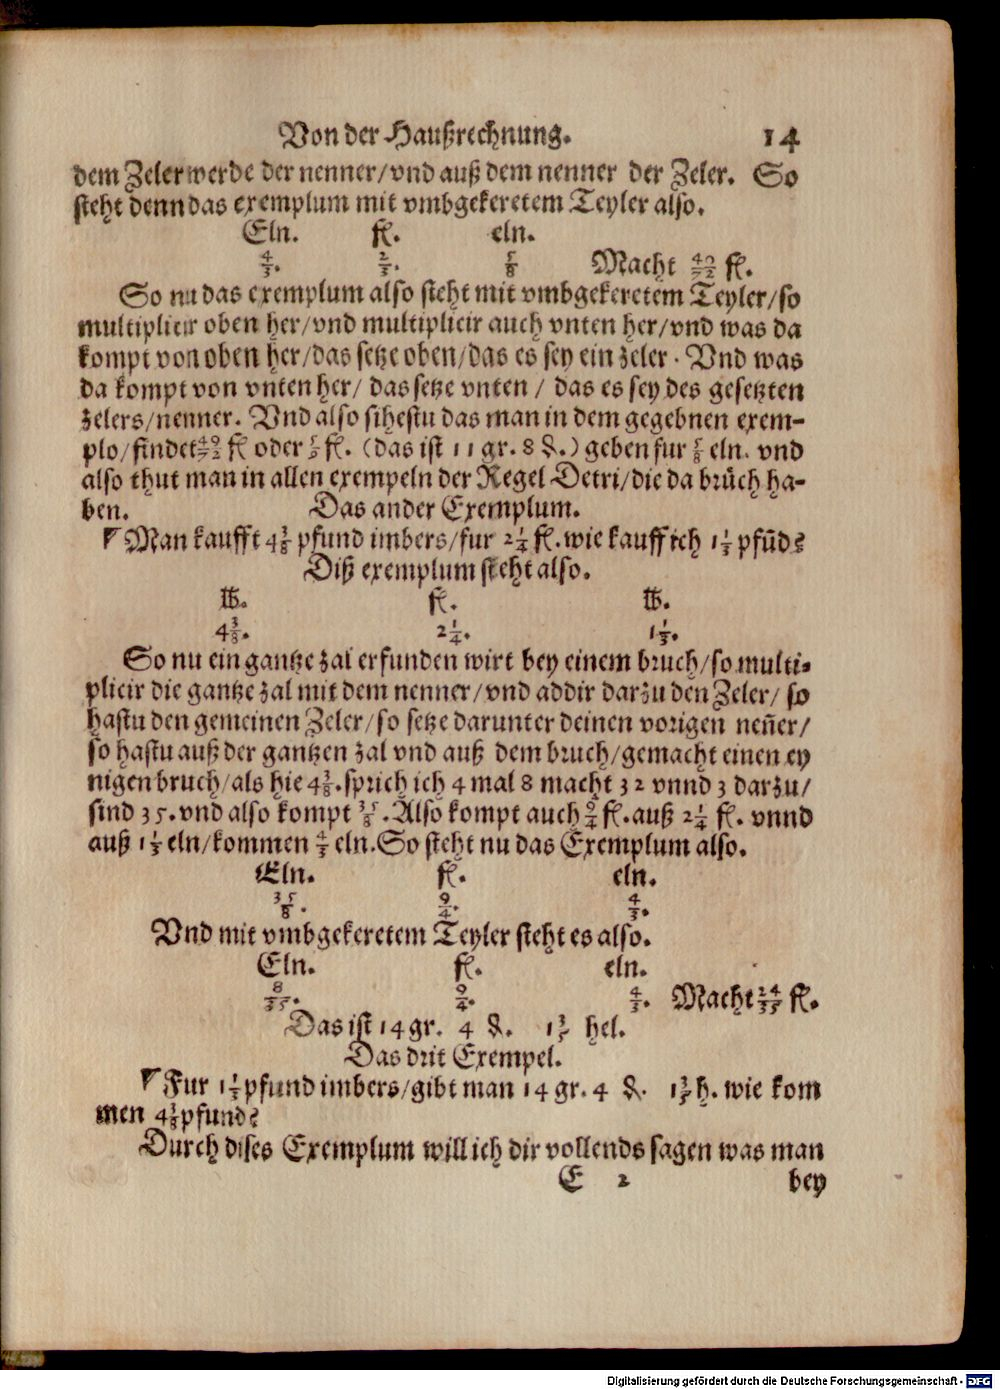 Von der Haußrechnung. 14
dem Zeler werde der nenner/vnd auß dem nenner der Zeler. So
steht denn das exemplum mit vmbgekeretem Teyler also.
Eln. fl. eln.
4/3. 2/3. 5/8 Macht 40/72 fl.
So nu das exemplum also steht mit vmbgekeretem Teyler/so
multiplicir oben her/vnd multiplicir auch vnten her/vnd was da
kompt von oben her/das setze oben/das es sey ein zeler. Vnd was
da kompt von vnten her/ das setze vnten / das es sey des gesetzten
zelers/nenner. Vnd also sihestu das man in dem gegebnen exem-
plo/findet 40/72 fl oder 5/9 fl. (das ist 11 gr. 8 ₰.) geben fur 5/8 eln. vnd
also thut man in allen exempeln der Regel Detri/die da brüch ha-
ben. Das ander Exemplum.
Man kaufft 4 3/8 pfund imbers/fur 2 1/4 fl. wie kauff ich 1 1/3 pfūd?
Diß exemplum steht also.
℔. fl. ℔.
4 3/8. 2 1/4. 1 1/3.
So nu ein gantze zal erfunden wirt bey einem bruch/so multi-
plicir die gantze zal mit dem nenner/vnd addir darzu den Zeler/ so
hastu den gemeinen Zeler/so setze darunter deinen vorigen neñer/
so hastu auß der gantzen zal vnd auß dem bruch/gemacht einen ey
nigen bruch/als hie 4 3/8. sprich ich 4 mal 8 macht 32 vnnd 3 darzu/
sind 35. vnd also kompt 35/8. Also kompt auch 9/4 fl. auß 2 1/4 fl. vnnd
auß 1 1/3 eln/kommen 4/3 eln. So steht nu das Exemplum also.
Eln. fl. eln.
35/8. 9/4. 4/3.
Vnd mit vmbgekeretem Teyler steht es also.
Eln. fl. eln.
8/35. 9/4. 4/3. Macht 24/35 fl.
Das ist 14 gr. 4 ₰. 1 3/5 hel.
Das drit Exempel.
Fur 1 1/3 pfund imbers/gibt man 14 gr. 4 ₰. 1 3/5 h. wie kom
men 4 3/8 pfund?
Durch dises Exemplum will ich dir vollends sagen was man
E 2 bey
Digitalisierung gefördert durch die Deutsche Forschungsgemeinschaft - DFG